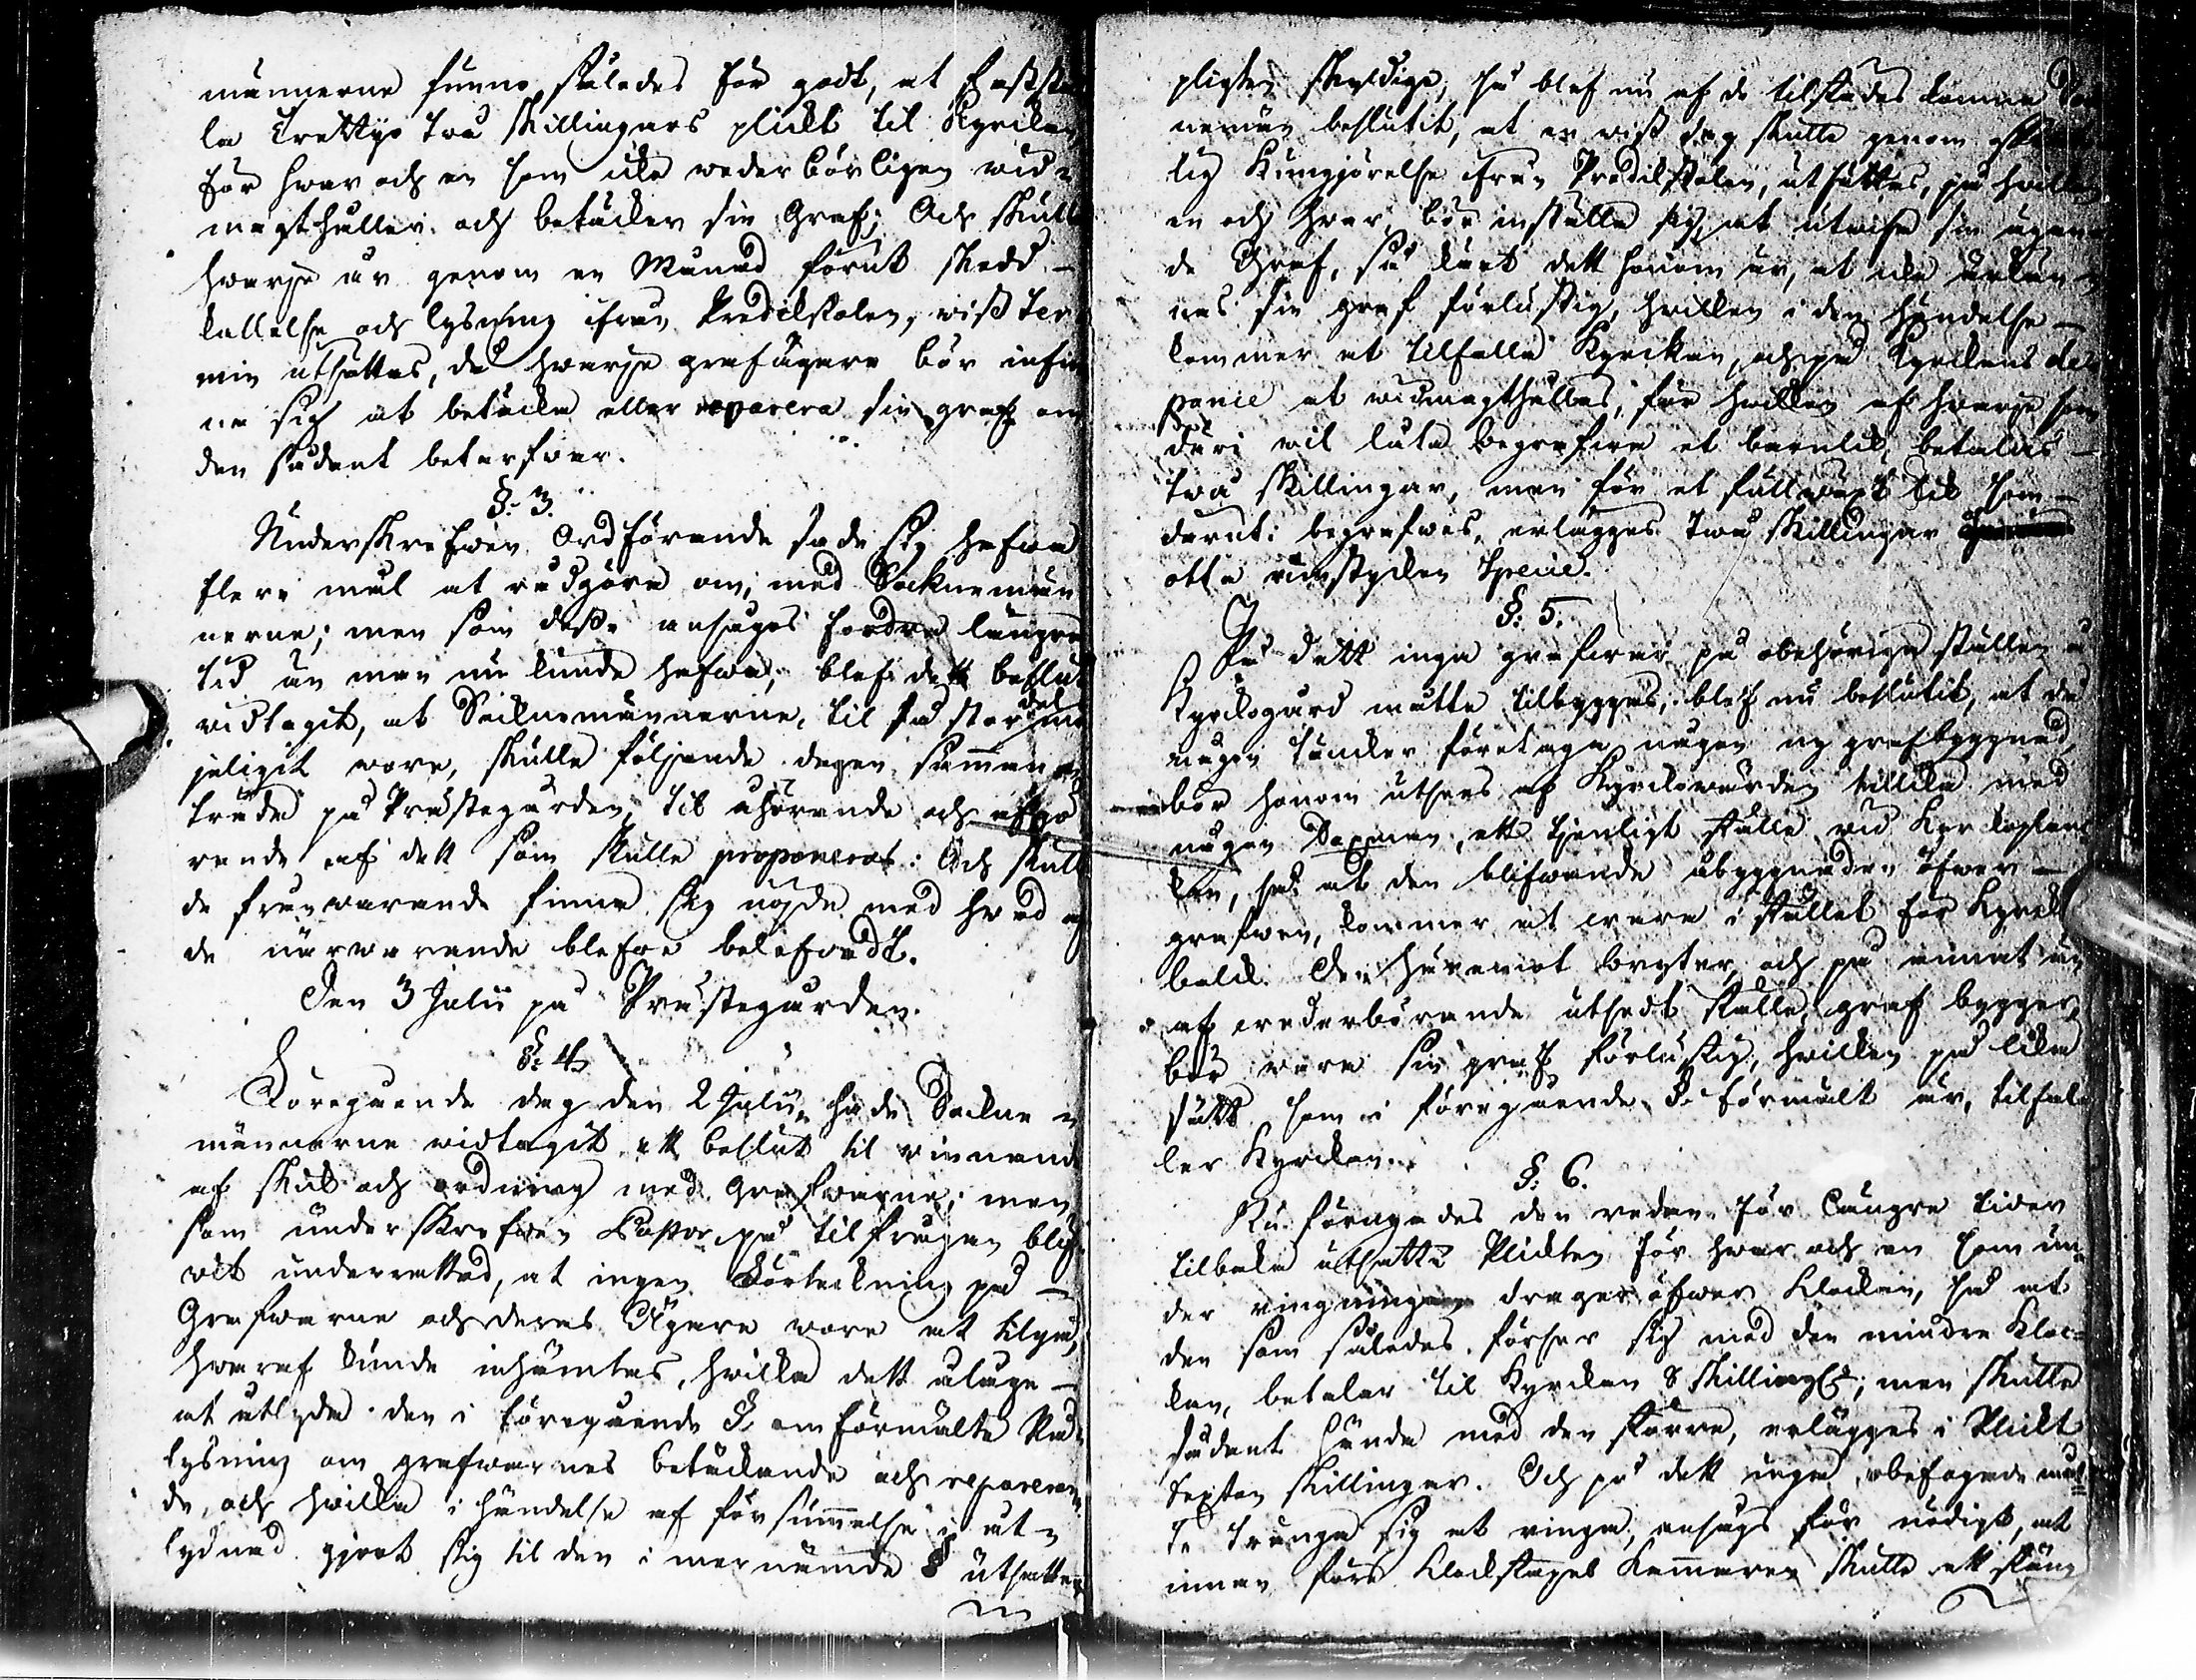 männerne funno således för godt, at faststä
la Trettyo två skillingars plickt til Kyrckan
för hvar och en som icke wederbörligen wid-
magthåller och betäcker sin Graf; Och skulle
hvarje år genom en Månad förut skedd
kallelse och lysning ifrån Predikstolen, wiss ter
min utsättas, då hvarje grafägare bör infin
na sig at betäcka eller reparera sin graf om
den sådant betarfvar.
§: 3.
Underskrefwen Ordförande sade sig hafwa
flere mål at rådgöra om, med Socknemän
nerne; men som desse ansågos fordra längre
tid än man nu kunde hafwa, blef dett beslut
vidtagit, at Socknemännerne, til så stor del mö
jeligit wore, skulle följande dagen samman
träda på Prästegården til åhörande och afgö
rande af dett som skulle proponeras: Och skulle
de frånwarande finna sig nögde med hwad
de närwarande blefwo belefvadt.
Den 3 Julii på Prästegården.
§: 4.
Föregående dag den 2 Julii hade Sockne
männerne vidtagit ett beslut til winnande
af skick och ordning med Grafwarne; men
som underskrefwen Pastor på tilfrågan blif
vit underrettad, at ingen Förteckning på
Grafwarne och deras Ägare wore at tilgå,
hwaraf kunde inhämtas, hvilka dett ålåge
at utlyda den i föregående §. omförmälte På
lysning om grafwarnes betäckande och reparerande
de, och hvilka i händelse af försummelse i ut-
lydnad gjort sig til den i mernämde § utsatte
pligten skyldige, så blef nu af de tilstädes komne Soc
nemän beslutit, at en wiss dag skulle genom
lig Kungjörelse ifrån Predikstolen, utsättas, på hwilken
en och hvar bör inställa sig, at utwisa sin ägan
de Graf, så kärt dett honom är, at icke erkän
nas sin graf förlustig, hvilken i den händelse
kommer at tilfalla Kyrckan, och på Kyrckans de
pance at widmagthållas, för hvilken af hvarje som
däri wil låta begrafwa et barnlik, betalas
två skillingar, men för et fullwuxt lik som
daruti begrafwes, erlägges två skillingar
otta runstycken Specie.
§: 5.
På dett inga grafwar på obehöriga ställen å
Kyrckogård måtte tilbyggas, blef nu beslutit, at då
någon täncker företaga någon ny grafbyggnad,
bör honom utsees af Kyrckowärden tillika med
någon Dexman, ett tjenligt ställe wid
så at den blifwande åbyggnaden öfwer
grafwen, kommer at wara i stället för Kyrck
balk. Den häremot bryter och på annat än
af wederbörande utsedt ställe, graf bygger,
bör wara sin graf förlustig, hvilken på lika
sätt som i föregående §. förmält är, tilfal
ler Kyrckan.
§: 6.
Nu förnyades den redan för längre tider
tilbaka utsatte Plickten för hwar och en som un
der ringningen drager öfwer klockan, så at
den som således förser sig med den mindre Kloc=
kan, betalar til Kyrckan 8 skilling; men skulle
sådant hända med den större, erlägges i Plickt
Sexton skillingar. Och på dett inga obefogade måt
te tränga sig at ringa, ansågs för nödigt, at
innan före Klockstapels Kammaren skulle ett stäng